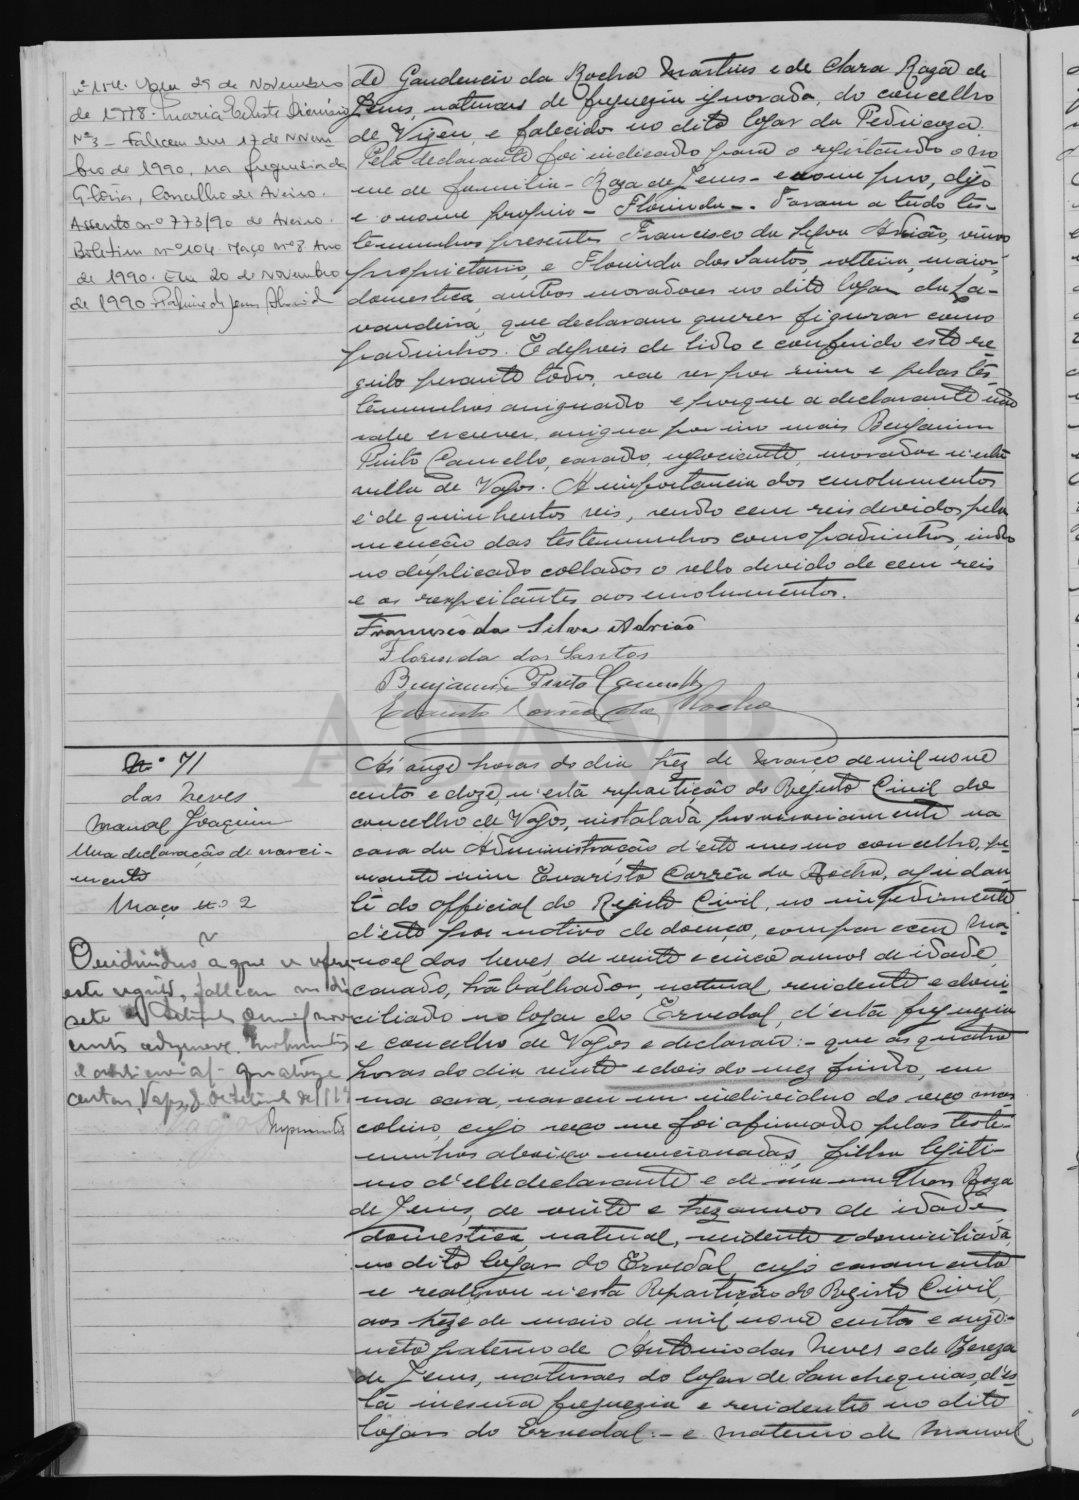 nº 154. Vagos 29 de Novembro
de 1978. Maria Celeste
Nº 3 - Faleceu em 17 de Novem-
bro de 1990, na freguesia da
Glória, Concelho de Aveiro.
Assento nº 773/90 de Aveiro.
Boletim nº 104. Maço nº 8. Ano
de 1990. Em 20 de Novembro
de 1990.
de Gaudencio da Rocha Martins e de Clara Roza de
Jesus, naturaes de freguezia ignorada, do concelho
de Vizeu, e falecidos no dito logar da Pedricoza.
Pelo declarante foi indicado para o registando o no
me de familia - Roza de Jesus - e nome pro, digo
e o nome proprio - Florinda -. Foram a tudo tes-
temunhas presentes Francisco da Silva Adrião, viuvo
proprietario, e Florinda dos Santos, solteira, maior,
domestica, ambos moradores no dito logar da La-
vandeira, que declaram querer figurar como
padrinhos. E depois de lido e conferido este re
gisto perante todos, vae ser por mim e pelas tes-
temunhas assignado e porque a declarante não
sabe escrever, assigna por ino mais Benjamim
Pinto Camello, casado, negociante, morador n'esta
villa de Vagos. A importancia dos emolumentos
é de quinhentos reis, sendo cem reis devidos pela
menção das testemunhas como padrinhos, indo
no duplicado collados o sello devido de cem reis
e os respeitantes aos emolumentos.
Francisco da Silva Adrião
Florinda dos Santos
Benjamim Pinto Camello
Evaristo Corrêa da Rocha
ADAVR
Nº 71
das Neves
Manoel Joaquim
Uma declaração de nasci-
mento
Maço nº 2
O individuo a que se refere
este registo, falleceu no dia
sete de Setembro de mil nove
centos e dezenove.
quatorze
centavos. Vagos, 8 de Setembro de 1919
Ás onze horas do dia trez de Março de mil nove
centos e doze, n'esta repartição do Registo Civil do
concelho de Vagos, instalada provisoriamente na
casa da Administração d'este mesmo concelho, pe-
rante mim Evaristo Corrêa da Rocha, ajudan-
te do official do Registo Civil, no impedimento
d'este por motivo de doença, compareceu Ma-
noel das Neves, de vinte e cinco annos de idade,
casado, trabalhador, natural, residente e domi-
ciliado no logar do Ervedal, d'esta freguezia
e concelho de Vagos e declarou: - que ás quatro
horas do dia vinte e dois do mez findo, em
sua casa, nasceu um individuo do sexo mas
colino, cujo sexo me foi afirmado pelas teste-
munhas abaixo mencionadas, filho legiti-
mo d'elle declarante e de sua mulher Roza
de Jesus, de vinte e trez annos de idade,
domestica, natural, residente e domiciliada
no dito logar do Ervedal, cujo casamento
se realisou n'esta Repartição do Registo Civil,
aos treze de maio de mil nove centos e onze: -
neto paterno de Antonio das Neves e de Thereza
de Jesus, naturaes do logar de Sanchequias, d'es-
ta mesma freguezia e residentes no dito
logar do Ervedal: - e materno de Manoel